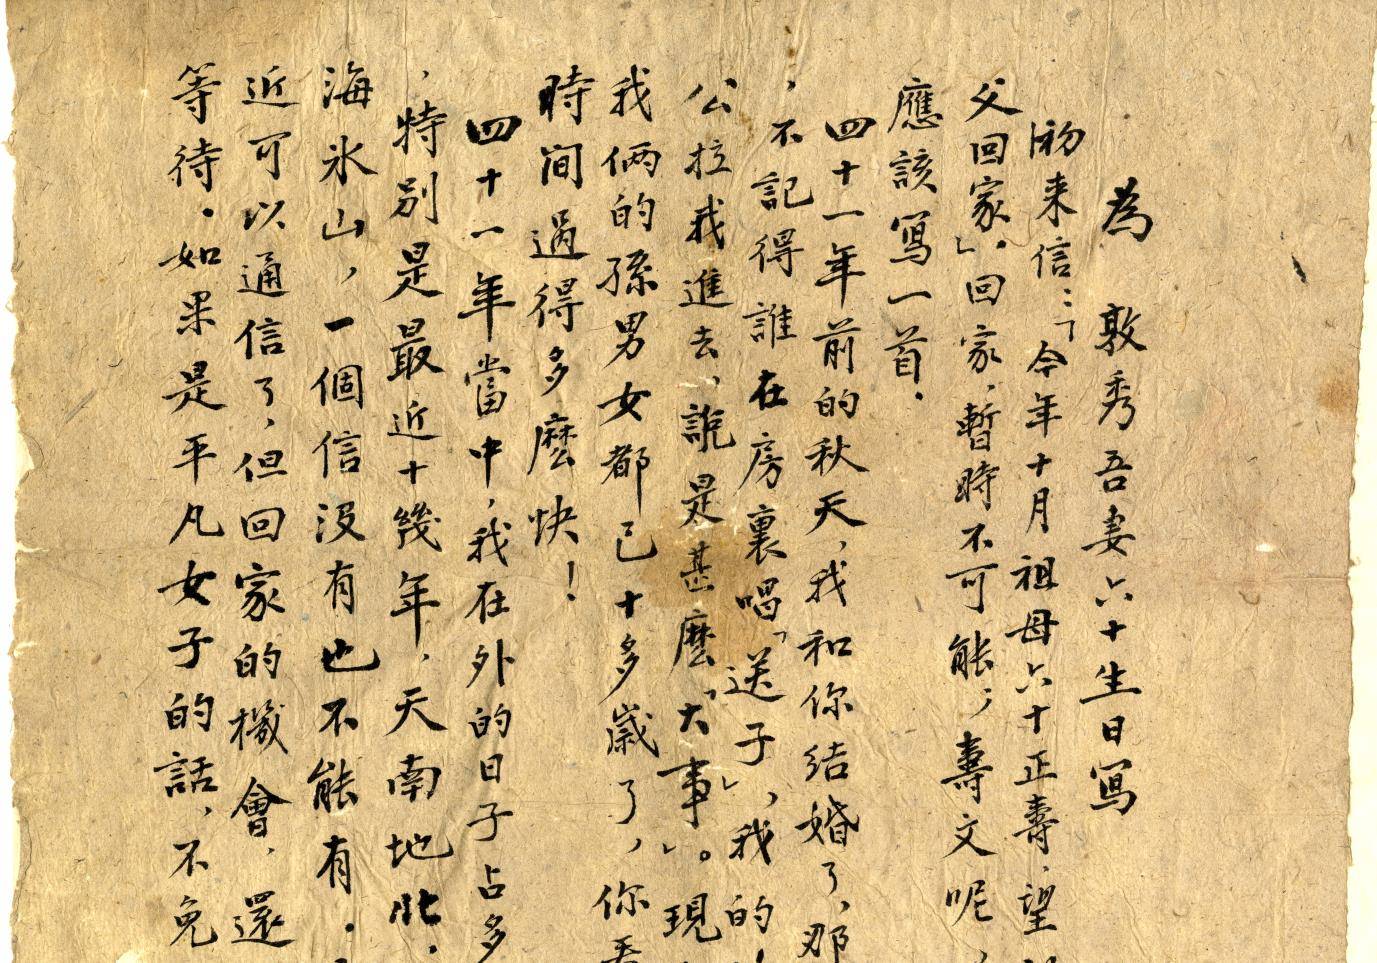 為　敦秀吾妻六十生日寫
來信：「今年十月祖母六十正壽，望
父回家」。回家，暫時不可能，壽文呢，
應該寫一首．
四十一年前的秋天，我和你結婚了，那
，不記得誰在房裏唱「送子」，我的
公拉我進去，說是甚麼「大事」。現
我倆的孫男女都已十多歲了，你看
時间過得多麼快！
四十一年當中，我在外的日子占多
，特別是最近十幾年，天南地北，
海氷山，一個信没有也不能有．
近可以通信了，但回家的機會，還
等待．如果是平凡女子的話，不免